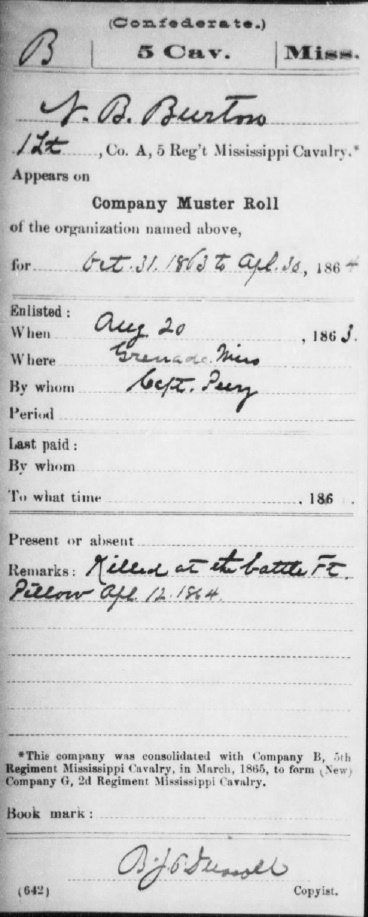 (Confederate.)
B | 5 Cav. | Miss.
N. B. Burton
1 Lt, Co. A, 5 Reg't Mississippi Cavalry.*
Appears on
Company Muster Roll
of the organization named above,
for Oct. 31. 1863 to Apl. 30, 1864
Enlisted:
When Aug 20, 1863.
Where Grenada Miss
By whom Capt. Perry
Period
Last paid:
By whom
To what time , 186 .
Present or absent
Remarks: Killed at the battle Ft.
Pillow Apl. 12. 1864.
*This company was consolidated with Company B, 5th
Regiment Mississippi Cavalry, in March, 1865, to form (New)
Company G, 2d Regiment Mississippi Cavalry.
Book mark:
(642) Copyist.